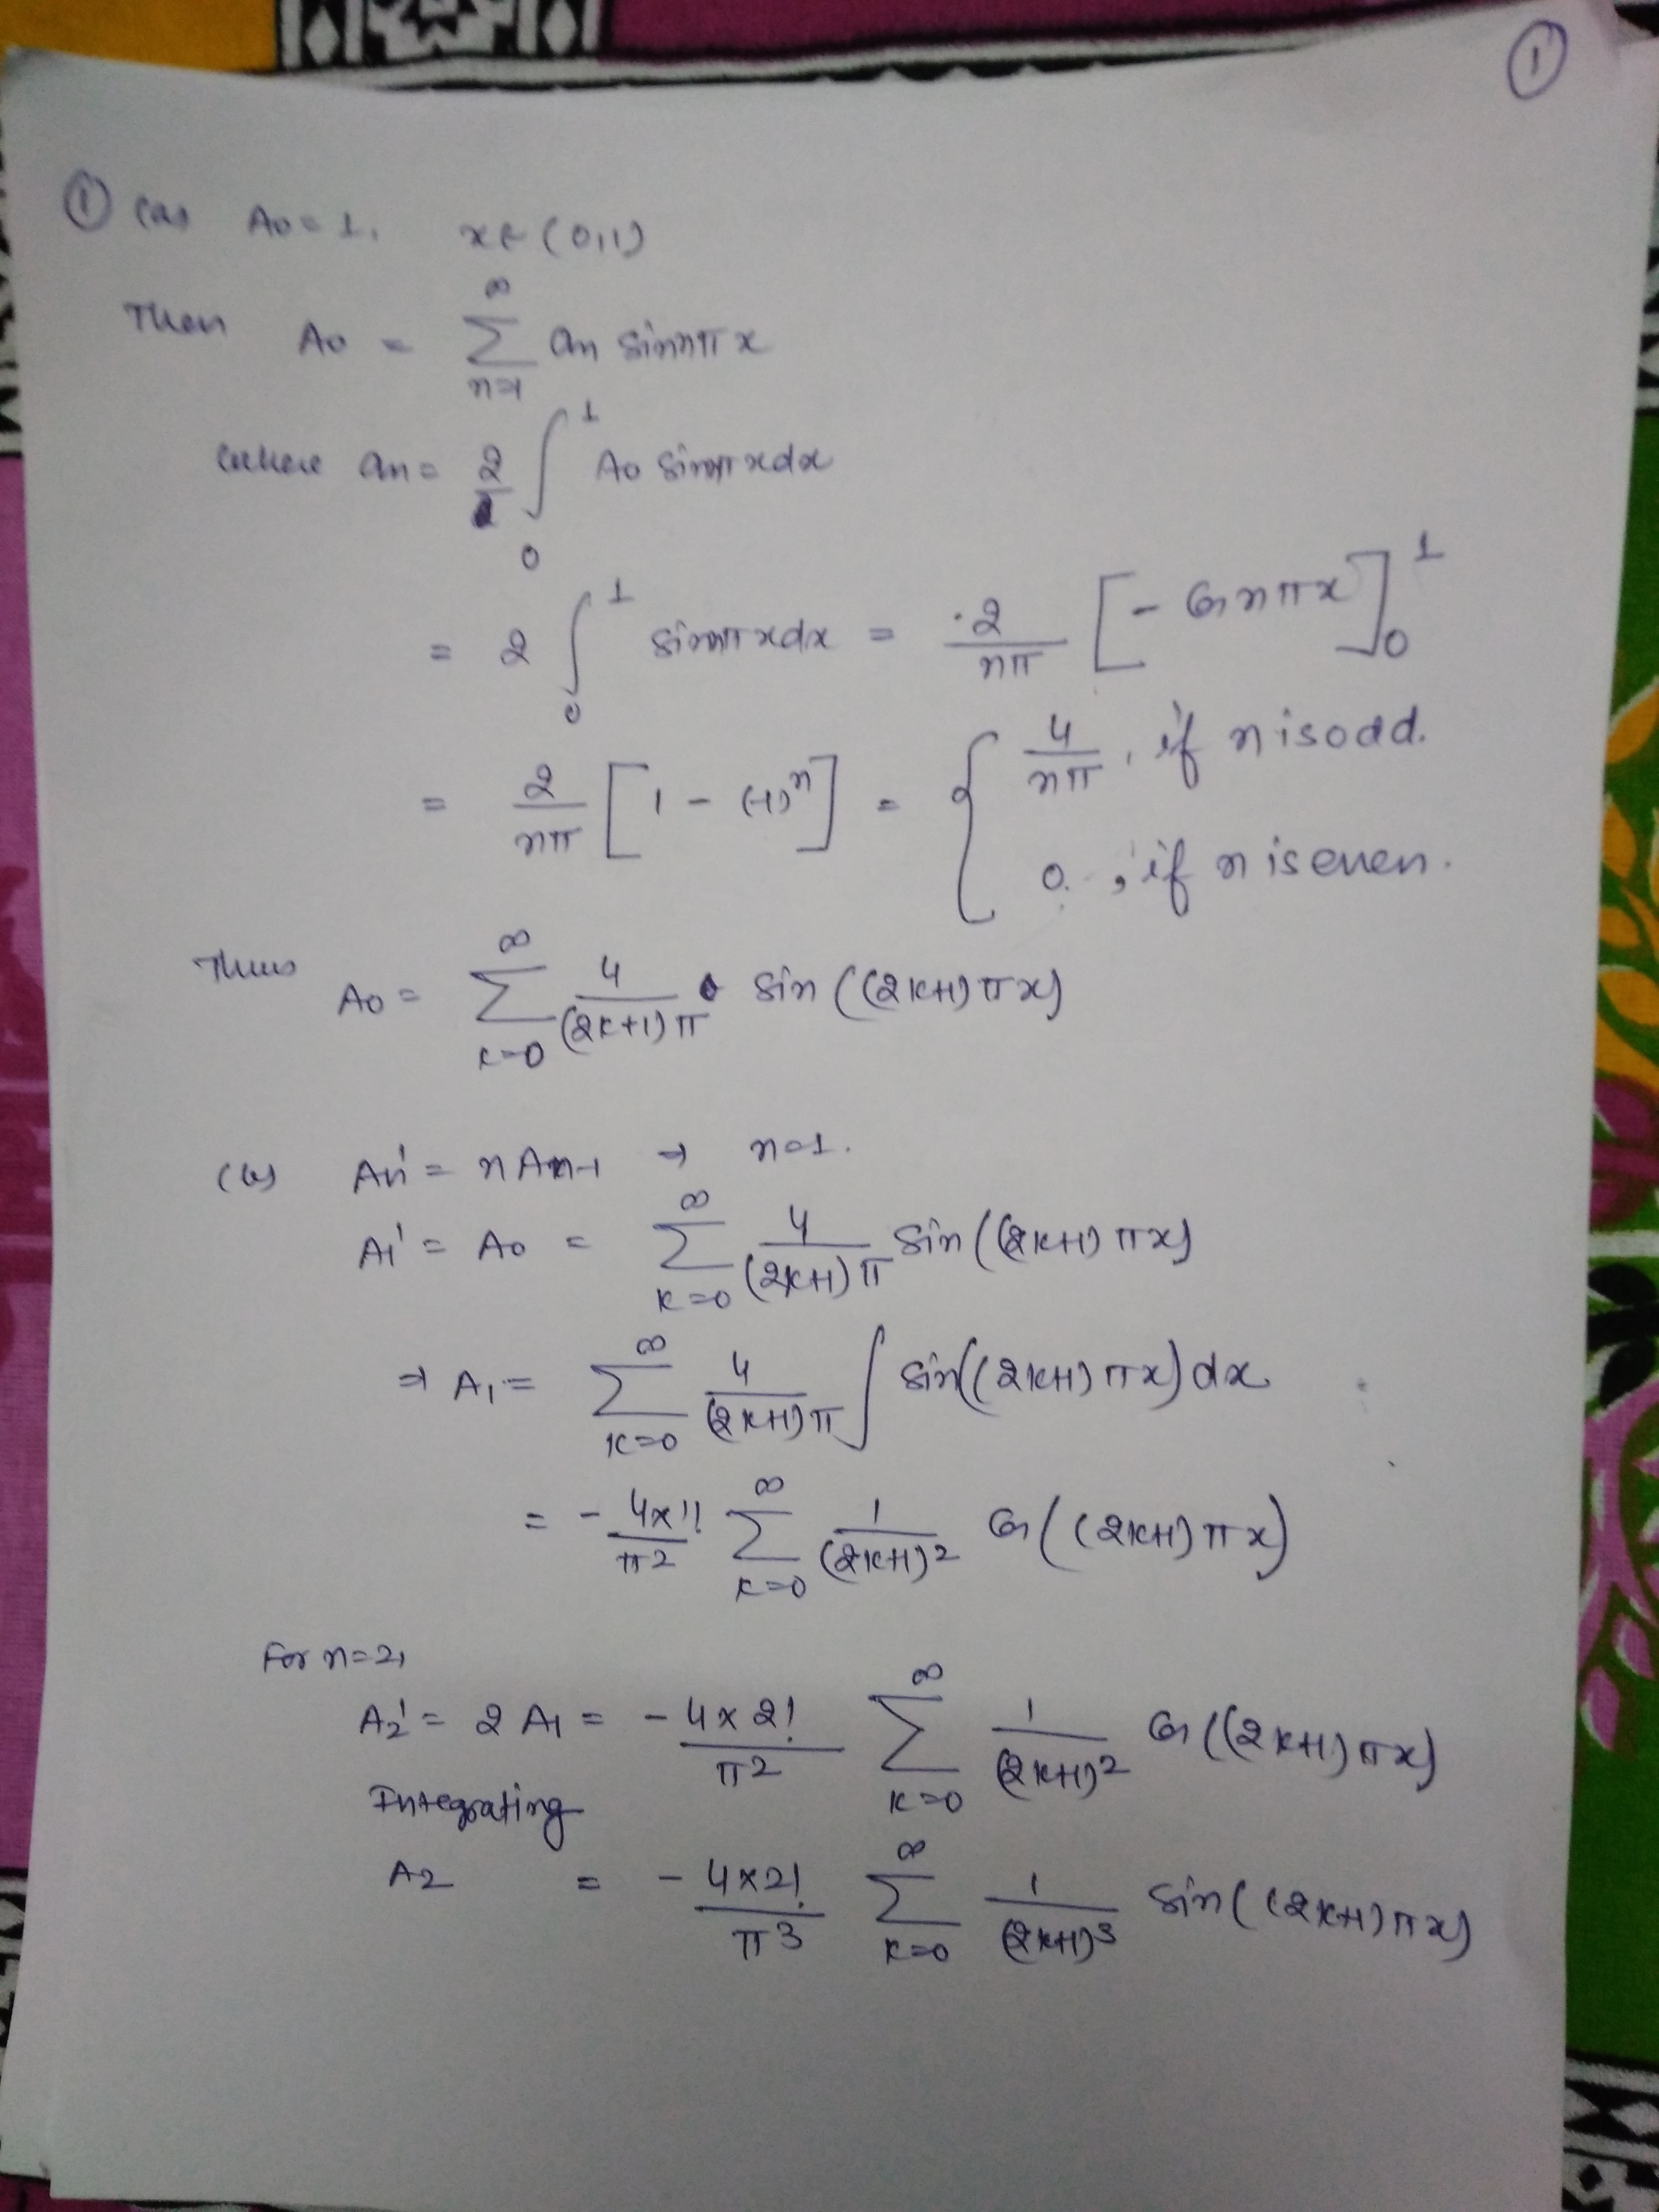 ①
① (a) A0 = 1, x ∈ (0,1)
Then A0 = ∑_{n=1}^{∞} an sin nπx
where an = 2/1 ∫_0^1 A0 sin nπx dx
= 2 ∫_0^1 sin nπx dx = 2/(nπ) [- cos nπx]_0^1
= 2/(nπ) [1 - (-1)^n] = { 4/(nπ), if n is odd.
0, if n is even.
Thus A0 = ∑_{k=0}^{∞} 4/((2k+1)π) sin((2k+1)πx)
(b) An' = n An-1 → n=1.
A1' = A0 = ∑_{k=0}^{∞} 4/((2k+1)π) sin((2k+1)πx)
⇒ A1 = ∑_{k=0}^{∞} 4/((2k+1)π) ∫ sin((2k+1)πx) dx
= - (4×1!)/π^2 ∑_{k=0}^{∞} 1/(2k+1)^2 cos((2k+1)πx)
For n=2,
A2' = 2A1 = - (4×2!)/π^2 ∑_{k=0}^{∞} 1/(2k+1)^2 cos((2k+1)πx)
Integrating
A2 = - (4×2!)/π^3 ∑_{k=0}^{∞} 1/(2k+1)^3 sin((2k+1)πx)